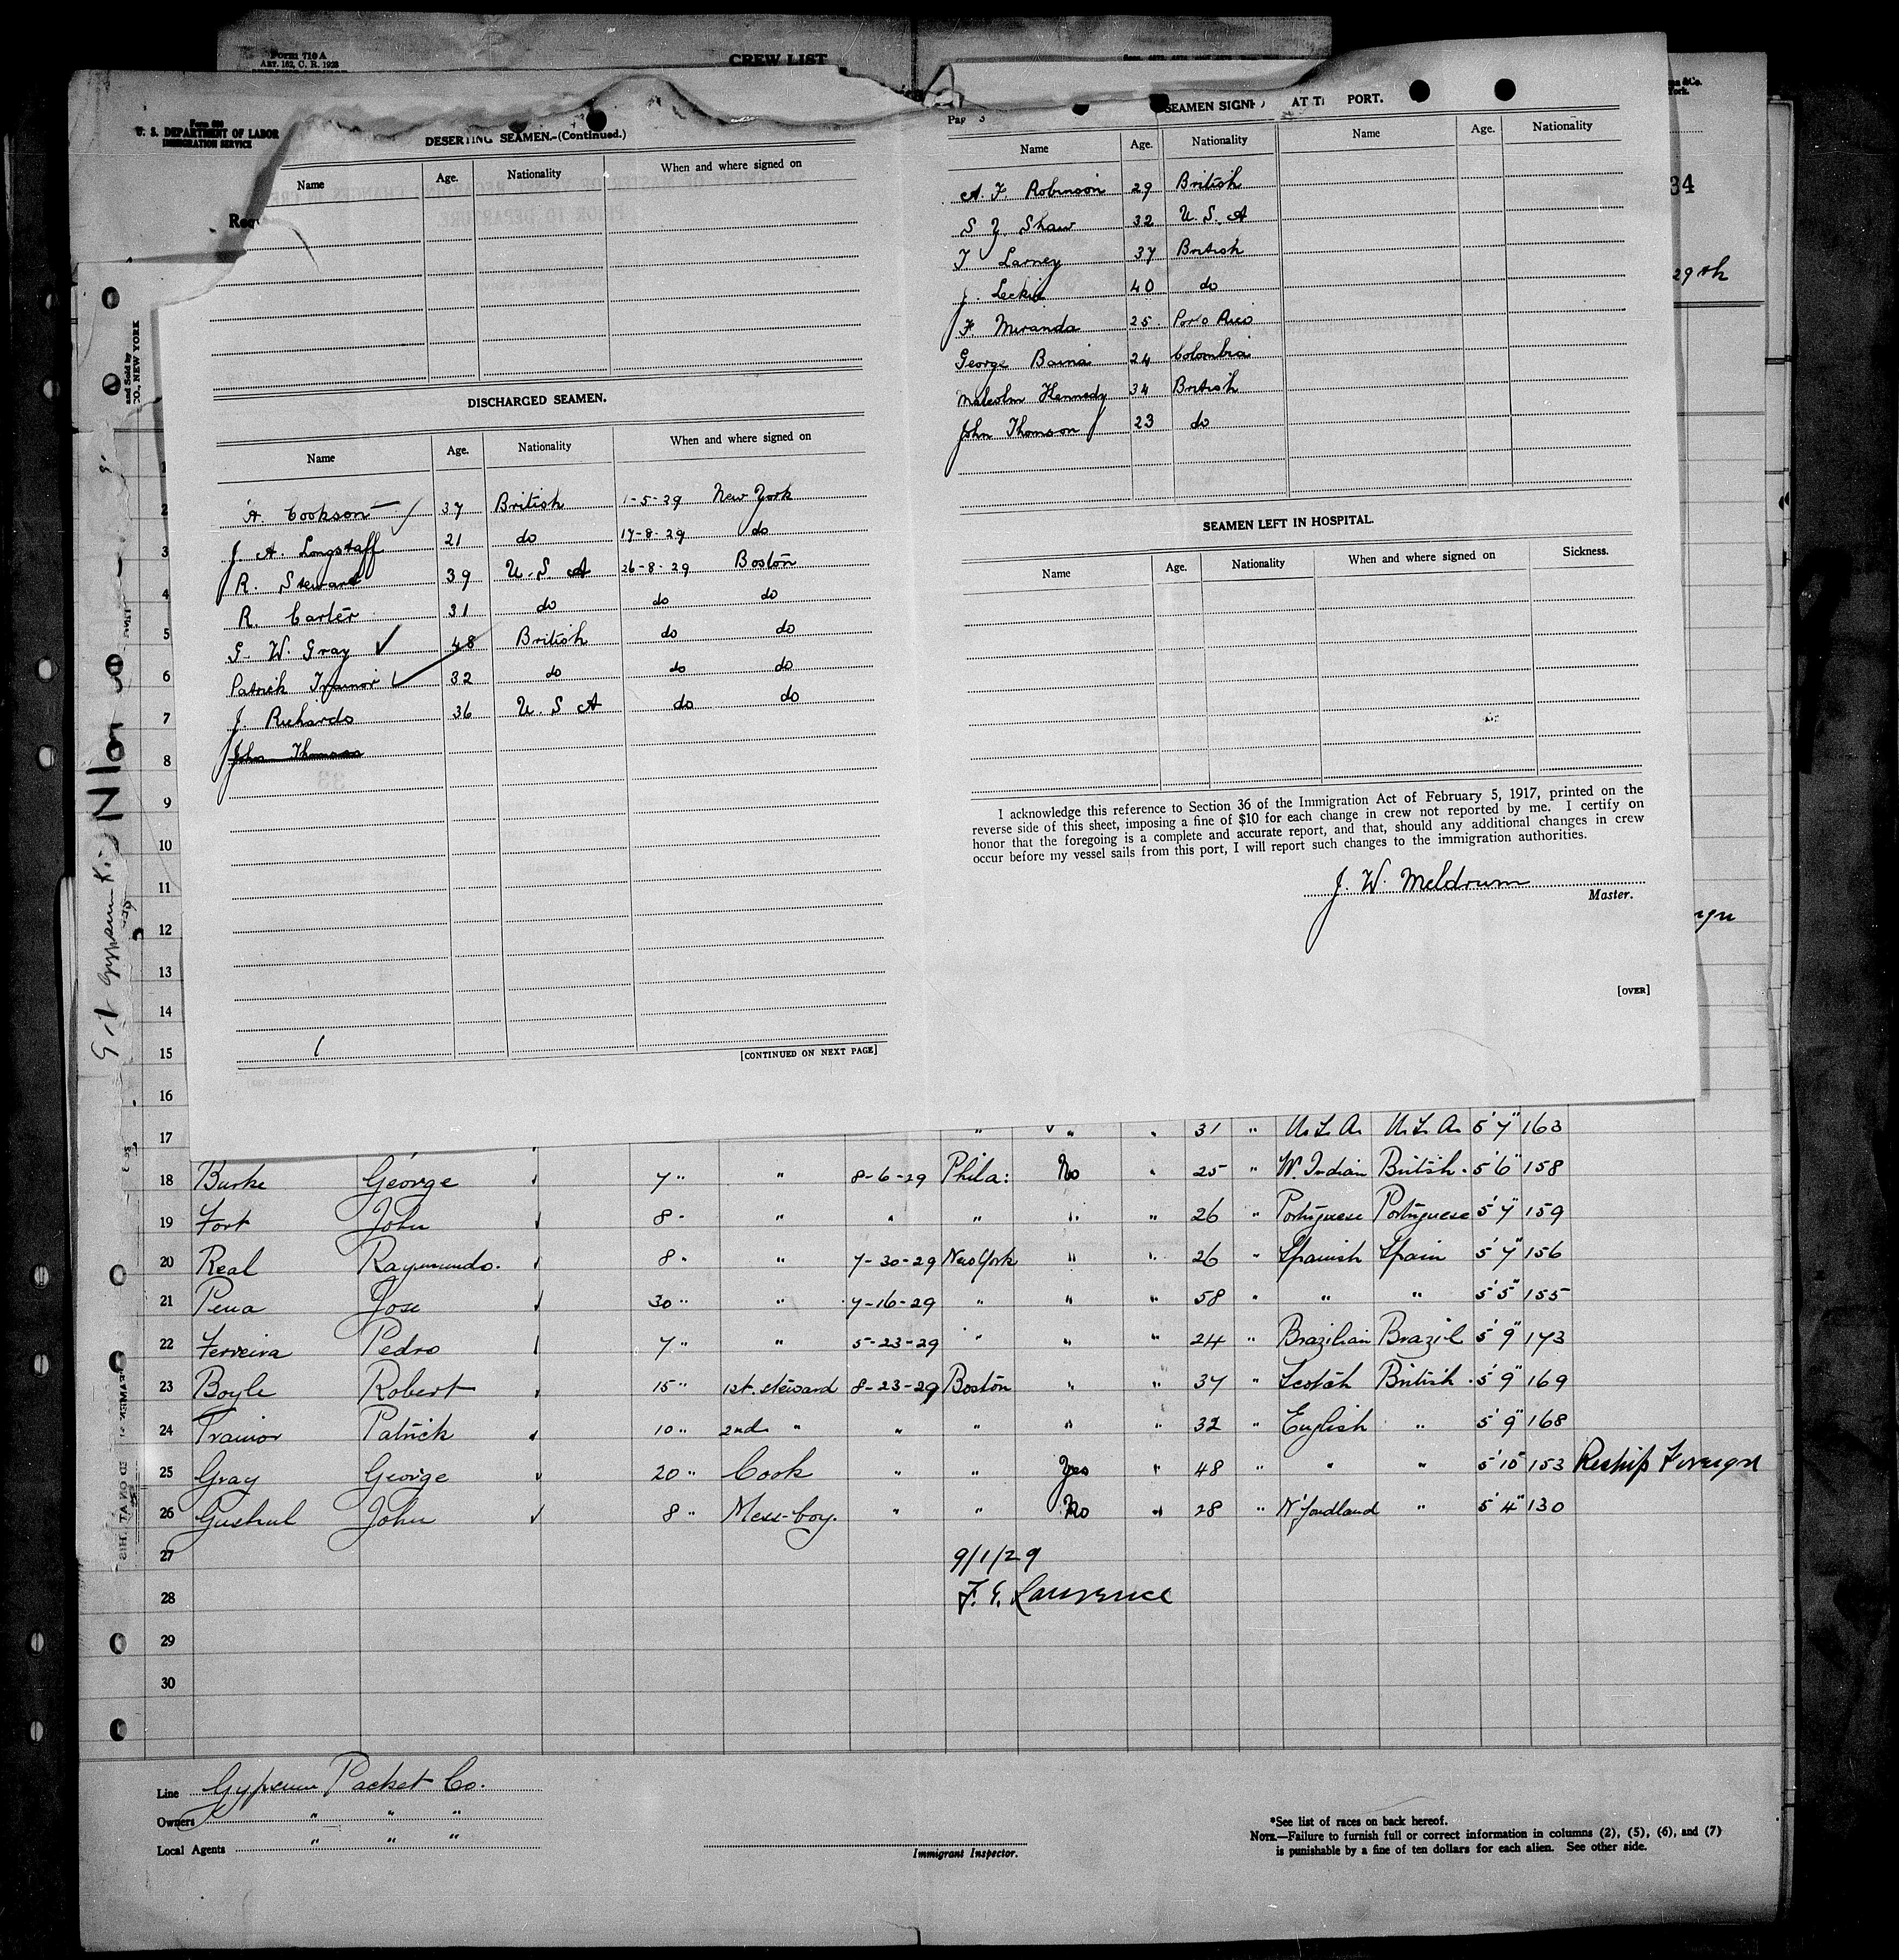 Form 710 A
ART. 162, C. R. 1928
CREW LIST
Form 680
U. S. DEPARTMENT OF LABOR
IMMIGRATION SERVICE
and Sold by
CO., NEW YORK
34
29th
DESERTING SEAMEN.-(Continued.)
Name Age. Nationality When and where signed on
DISCHARGED SEAMEN.
Name Age. Nationality When and where signed on
A. Cookson 37 British 1-5-29 New York
J. A. Longstaff 21 do 17-8-29 do
R. Stewart 39 U. S. A 26-8-29 Boston
R. Carter 31 do do do
G. W. Gray ✓ 48 British do do
Patrick Trainor ✓ 32 do do do
J. Richards 36 U. S A do do
John Thomson
[CONTINUED ON NEXT PAGE]
SEAMEN SIGN AT T PORT.
Name Age. Nationality Name Age. Nationality
A. F Robinson 29 British
S Y. Shaw 32 U. S. A
T Larney 37 British
J. Leckie 40 do
F Miranda 25. Porto Rico
George Baina 24 Colombia
Malcolm Kennedy 34 British
John Thomson 23 do
SEAMEN LEFT IN HOSPITAL.
Name Age. Nationality When and where signed on Sickness.
I acknowledge this reference to Section 36 of the Immigration Act of February 5, 1917, printed on the
reverse side of this sheet, imposing a fine of $10 for each change in crew not reported by me. I certify on
honor that the foregoing is a complete and accurate report, and that, should any additional changes in crew
occur before my vessel sails from this port, I will report such changes to the immigration authorities.
J. W. Meldrum
Master.
[OVER]
1
2
3
4
5
6
7
8
9
10
11
12
13
14
15
16
17 " " " 31 " U.S.A. U.S.A. 5'7" 163
18 Burke George ✓ 7 " " 8-6-29 Phila: No " 25 " W. Indian British. 5'6" 158
19 Fort John ✓ 8 " " " " " " 26 " Portuguese Portuguese 5'7" 159
20 Real Raymundo. ✓ 8 " " 7-30-29 New York " " 26 " Spanish Spain 5'7" 156
21 Pena Jose ✓ 30 " " 7-16-29 " " " 58 " " " 5'5" 155
22 Ferreira Pedro ✓ 7 " " 5-23-29 " " " 24 " Brazilian Brazil 5'9" 173
23 Boyle Robert ✓ 15 " 1st. steward 8-23-29 Boston " " 37 " Scotch British. 5'9" 169
24 Trainor Patrick ✓ 10 " 2nd " " " " " 32 " English " 5'9" 168
25 Gray George ✓ 20 " Cook " " Yes " 48 " " " 5'10" 153 Reship Foreign
26 Gushul John ✓ 8 " Mess-boy. " " No " 28 " N'foundland " 5'4" 130
27 9/1/29
28 F. E. Lawrence
29
30
Line Gypsum Packet Co.
Owners " " "
Local Agents " " "
Immigrant Inspector.
*See list of races on back hereof.
NOTE.—Failure to furnish full or correct information in columns (2), (5), (6), and (7)
is punishable by a fine of ten dollars for each alien. See other side.